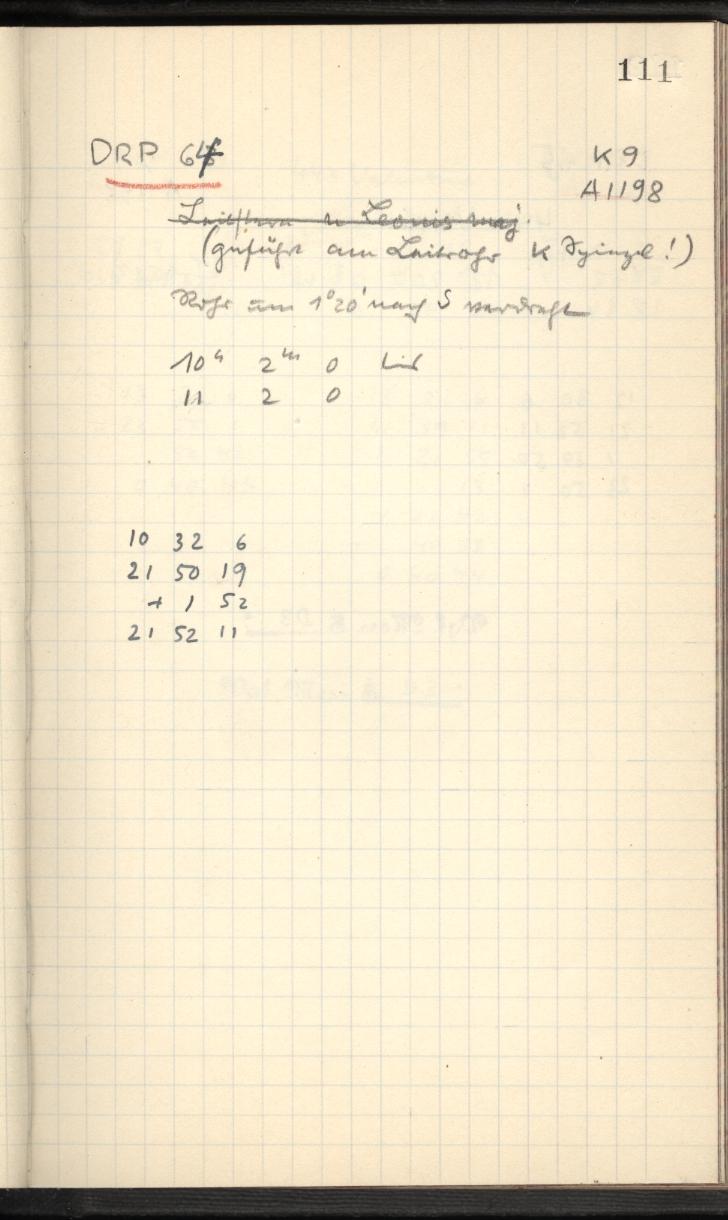 111
DRP 64 K 9
A 1198
Leitstern u Leonis maj.
(geführt am Leitrohr K Spiegel!)
Rohr um 1°20' nach S verdreht
10h 2m 0
11 2 0
10 32 6
21 50 19
+ 1 52
21 52 11